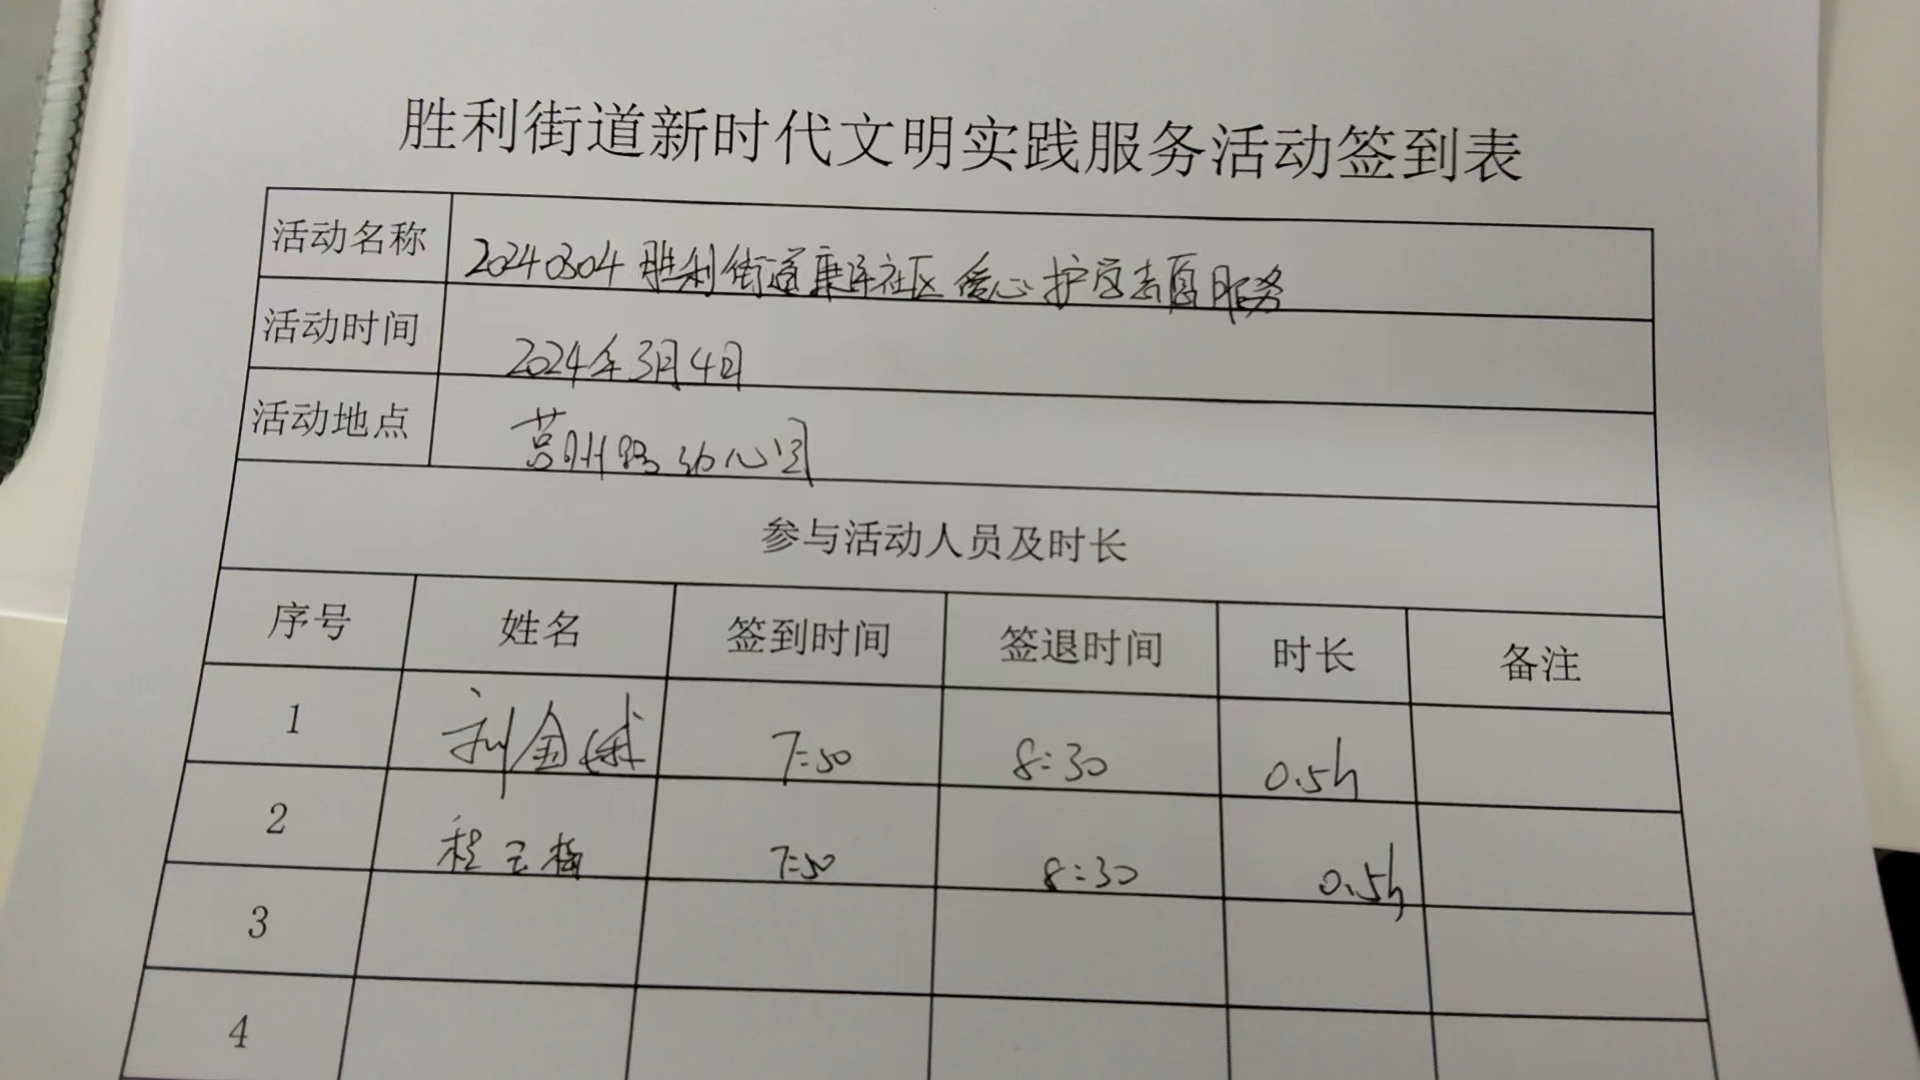 胜利街道新时代文明实践服务活动签到表
活动名称 20240304胜利街道康洋社区爱心护学志愿服务
活动时间 2024年3月4日
活动地点 莒州路幼儿园
参与活动人员及时长
序号 姓名 签到时间 签退时间 时长 备注
1 刘金 7:50 8:30 0.5h
2 程玉梅 7:50 8:30 0.5h
3
4